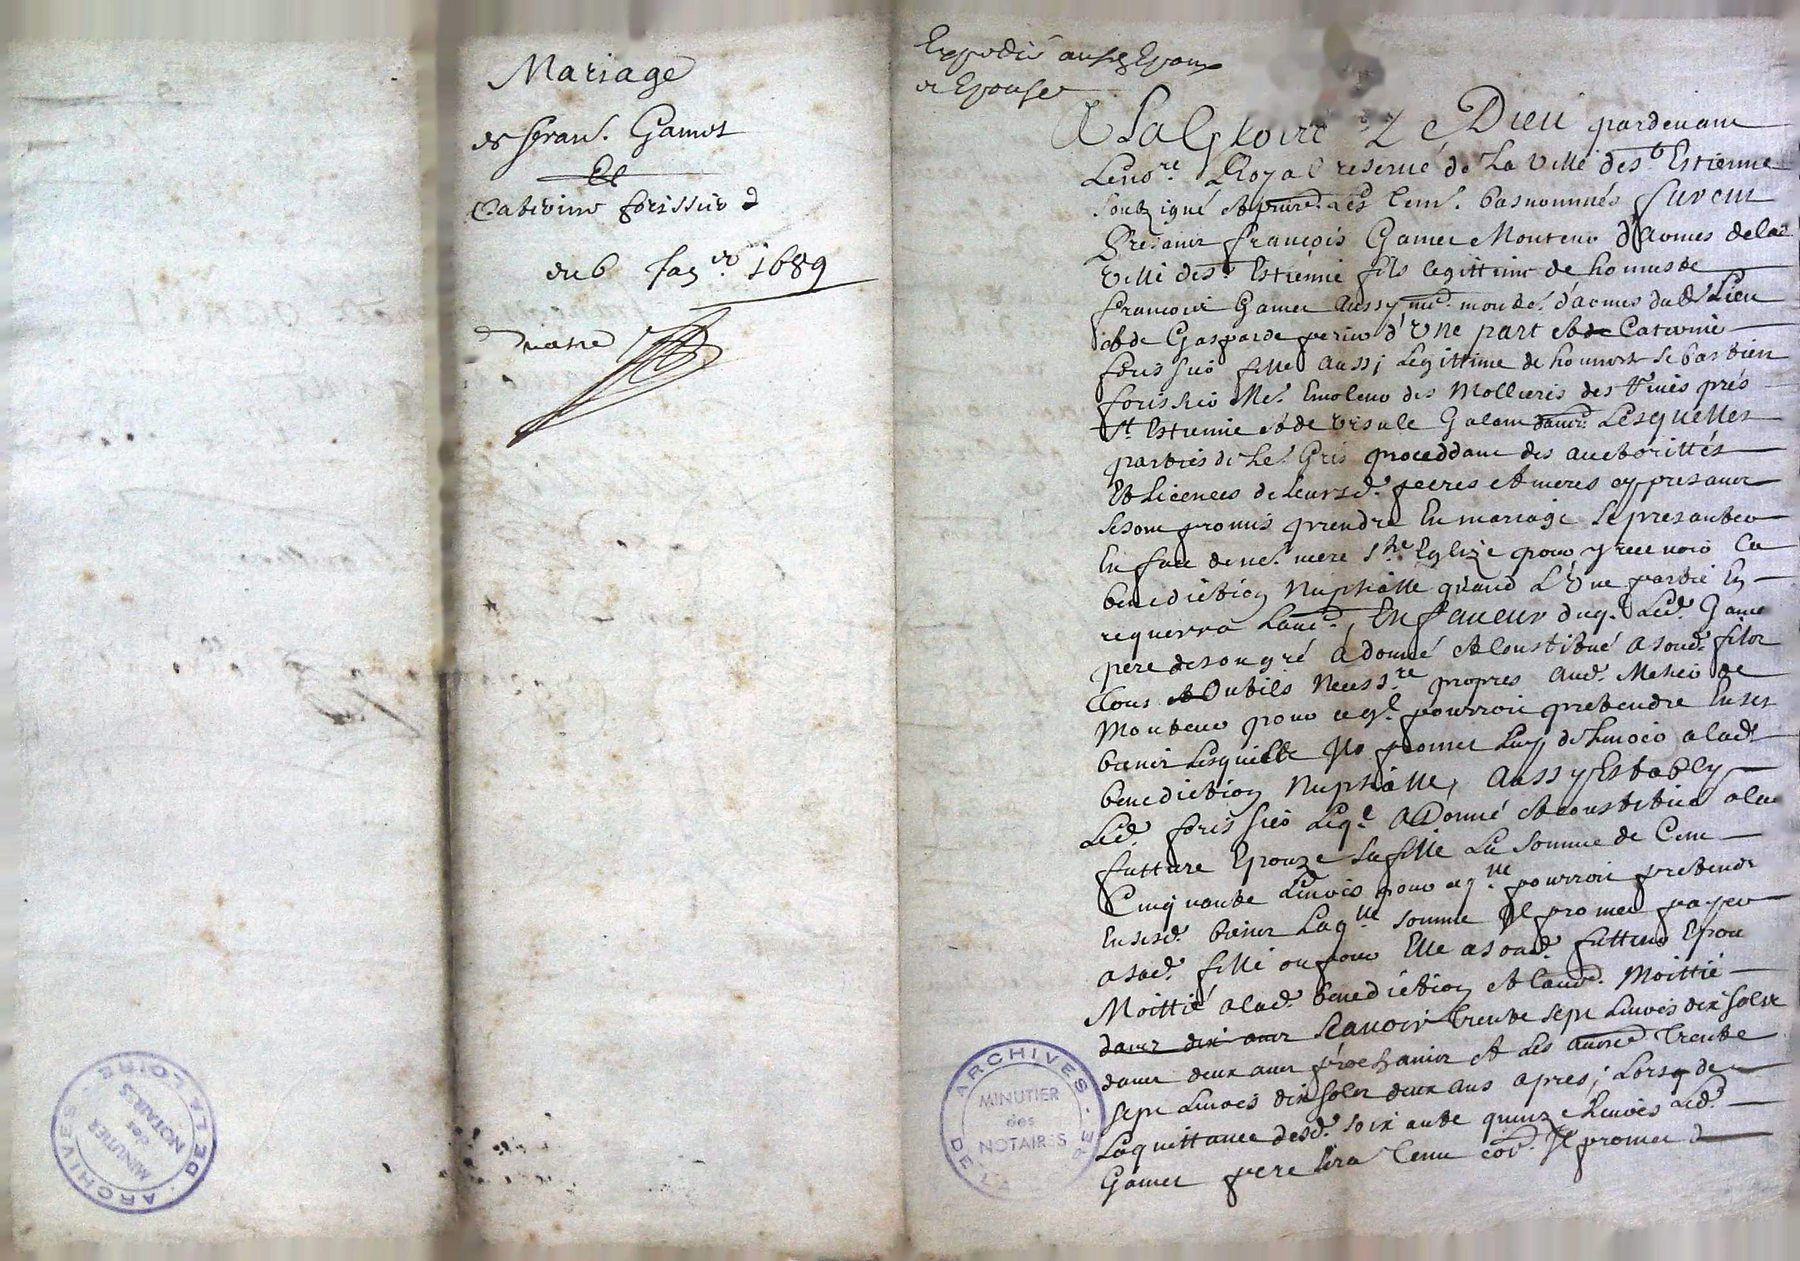 Mariage
de fran. Gamet
Et
Caterine forissier
du 6 Jan.er 1689
Expedié auxd Epoux
et Epouse
A La Gloire De Dieu pardevant
Le no.re Royal reservé de La Ville de s.t Estienne
soubzigné et pnce. des tem. bas nommés furent
Presant françois Gamet Monteur d'armes de lad
Ville de s. Estienne fils legittime de honneste
françois Gamet aussy m.e monte. d'armes dud Lieu
et de Gasparde perin d'Une part et de Caterine
foris sier fille aussi Legittime de honnest sebastien
forissier Me. Emoleur des Mollieres des Rives prés
s.t Estienne et de Ursule Galand d'autre Lesquelles
parties de Le. Gré proceddant des authorittés
Et Licences de Leursd. peres et meres cy presant
se sont promis prendre En mariage se presanter
En face de n.e mere s.te Eglize pour y recevoir La
benediction Nuptialle quand L'Une partie En
requerra L'autre, En faveur duq. Led. Gamet
pere de son gré a donné et Constitué a sond. fils
tous et Outils necess.re propres aud. Metier de
Monteur pour ce q.l pourroit pretendre En ses
biens Lesquels Il promet Luy delivrer a lad.
benediction Nuptialle, Aussy Estably
Led. foris sier Leq.l a Donné et constitué a la
future Epouze sa fille La somme de Cent
Cinquante Livres pour ce q.lle pourroit pretendre
En sesd. biens Laq.lle somme Il promet payer
a sad. fille ou pour Elle a sond. futtur Epou
Moittié a lad. benediction et l'autre Moittié
dans dix ans scavoir trente sept Livres dix solz
dans deux ans prochains et Les autres trente
sept Livres dix solz deux ans apres; Lors de
La quittance desd. soixante quinze Livres Led.
Gamet pere sera tenu co.e Il promet d
ARCHIVES DE LA LOIRE
MINUTIER
des
NOTAIRES
ARCHIVES DE LA
MINUTIER
des
NOTAIRES